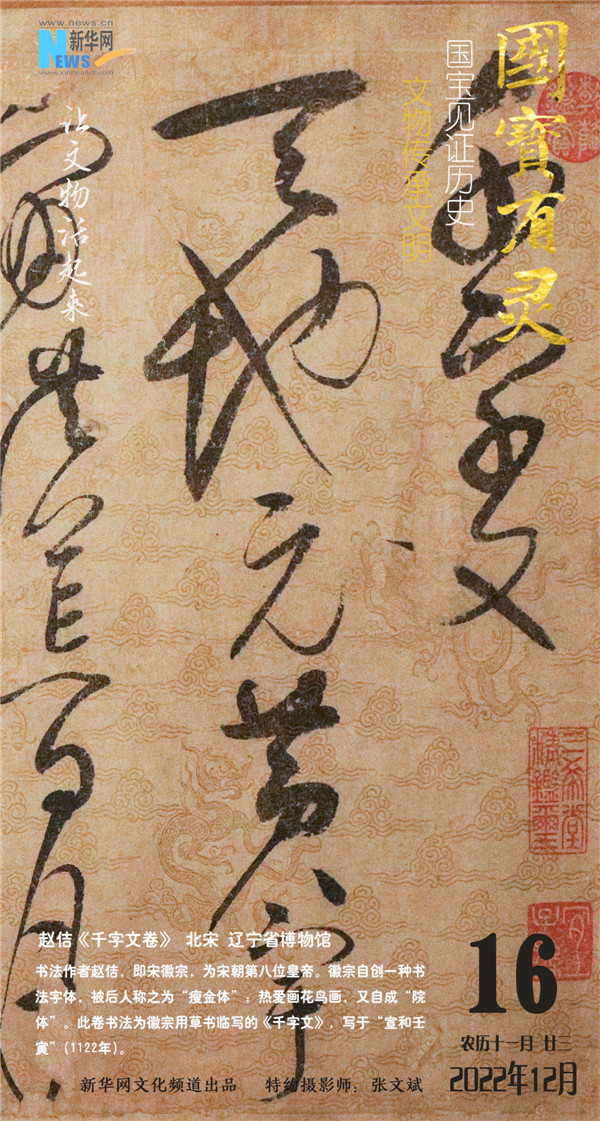 www.news.cn
新华网
NEWS
www.xinhuanet.com
國寳有灵
国宝见证历史
文物传承文明
让文物活起来
千文
天地元黄宇
洪荒日月
三希堂
精鑑璽
赵佶《千字文卷》 北宋 辽宁省博物馆
书法作者赵佶，即宋徽宗，为宋朝第八位皇帝。徽宗自创一种书
法字体，被后人称之为“瘦金体”；热爱画花鸟画，又自成“院
体”。此卷书法为徽宗用草书临写的《千字文》，写于“宣和壬
寅”（1122年）。
16
农历十一月 廿三
2022年12月
新华网文化频道出品 特约摄影师：张文斌